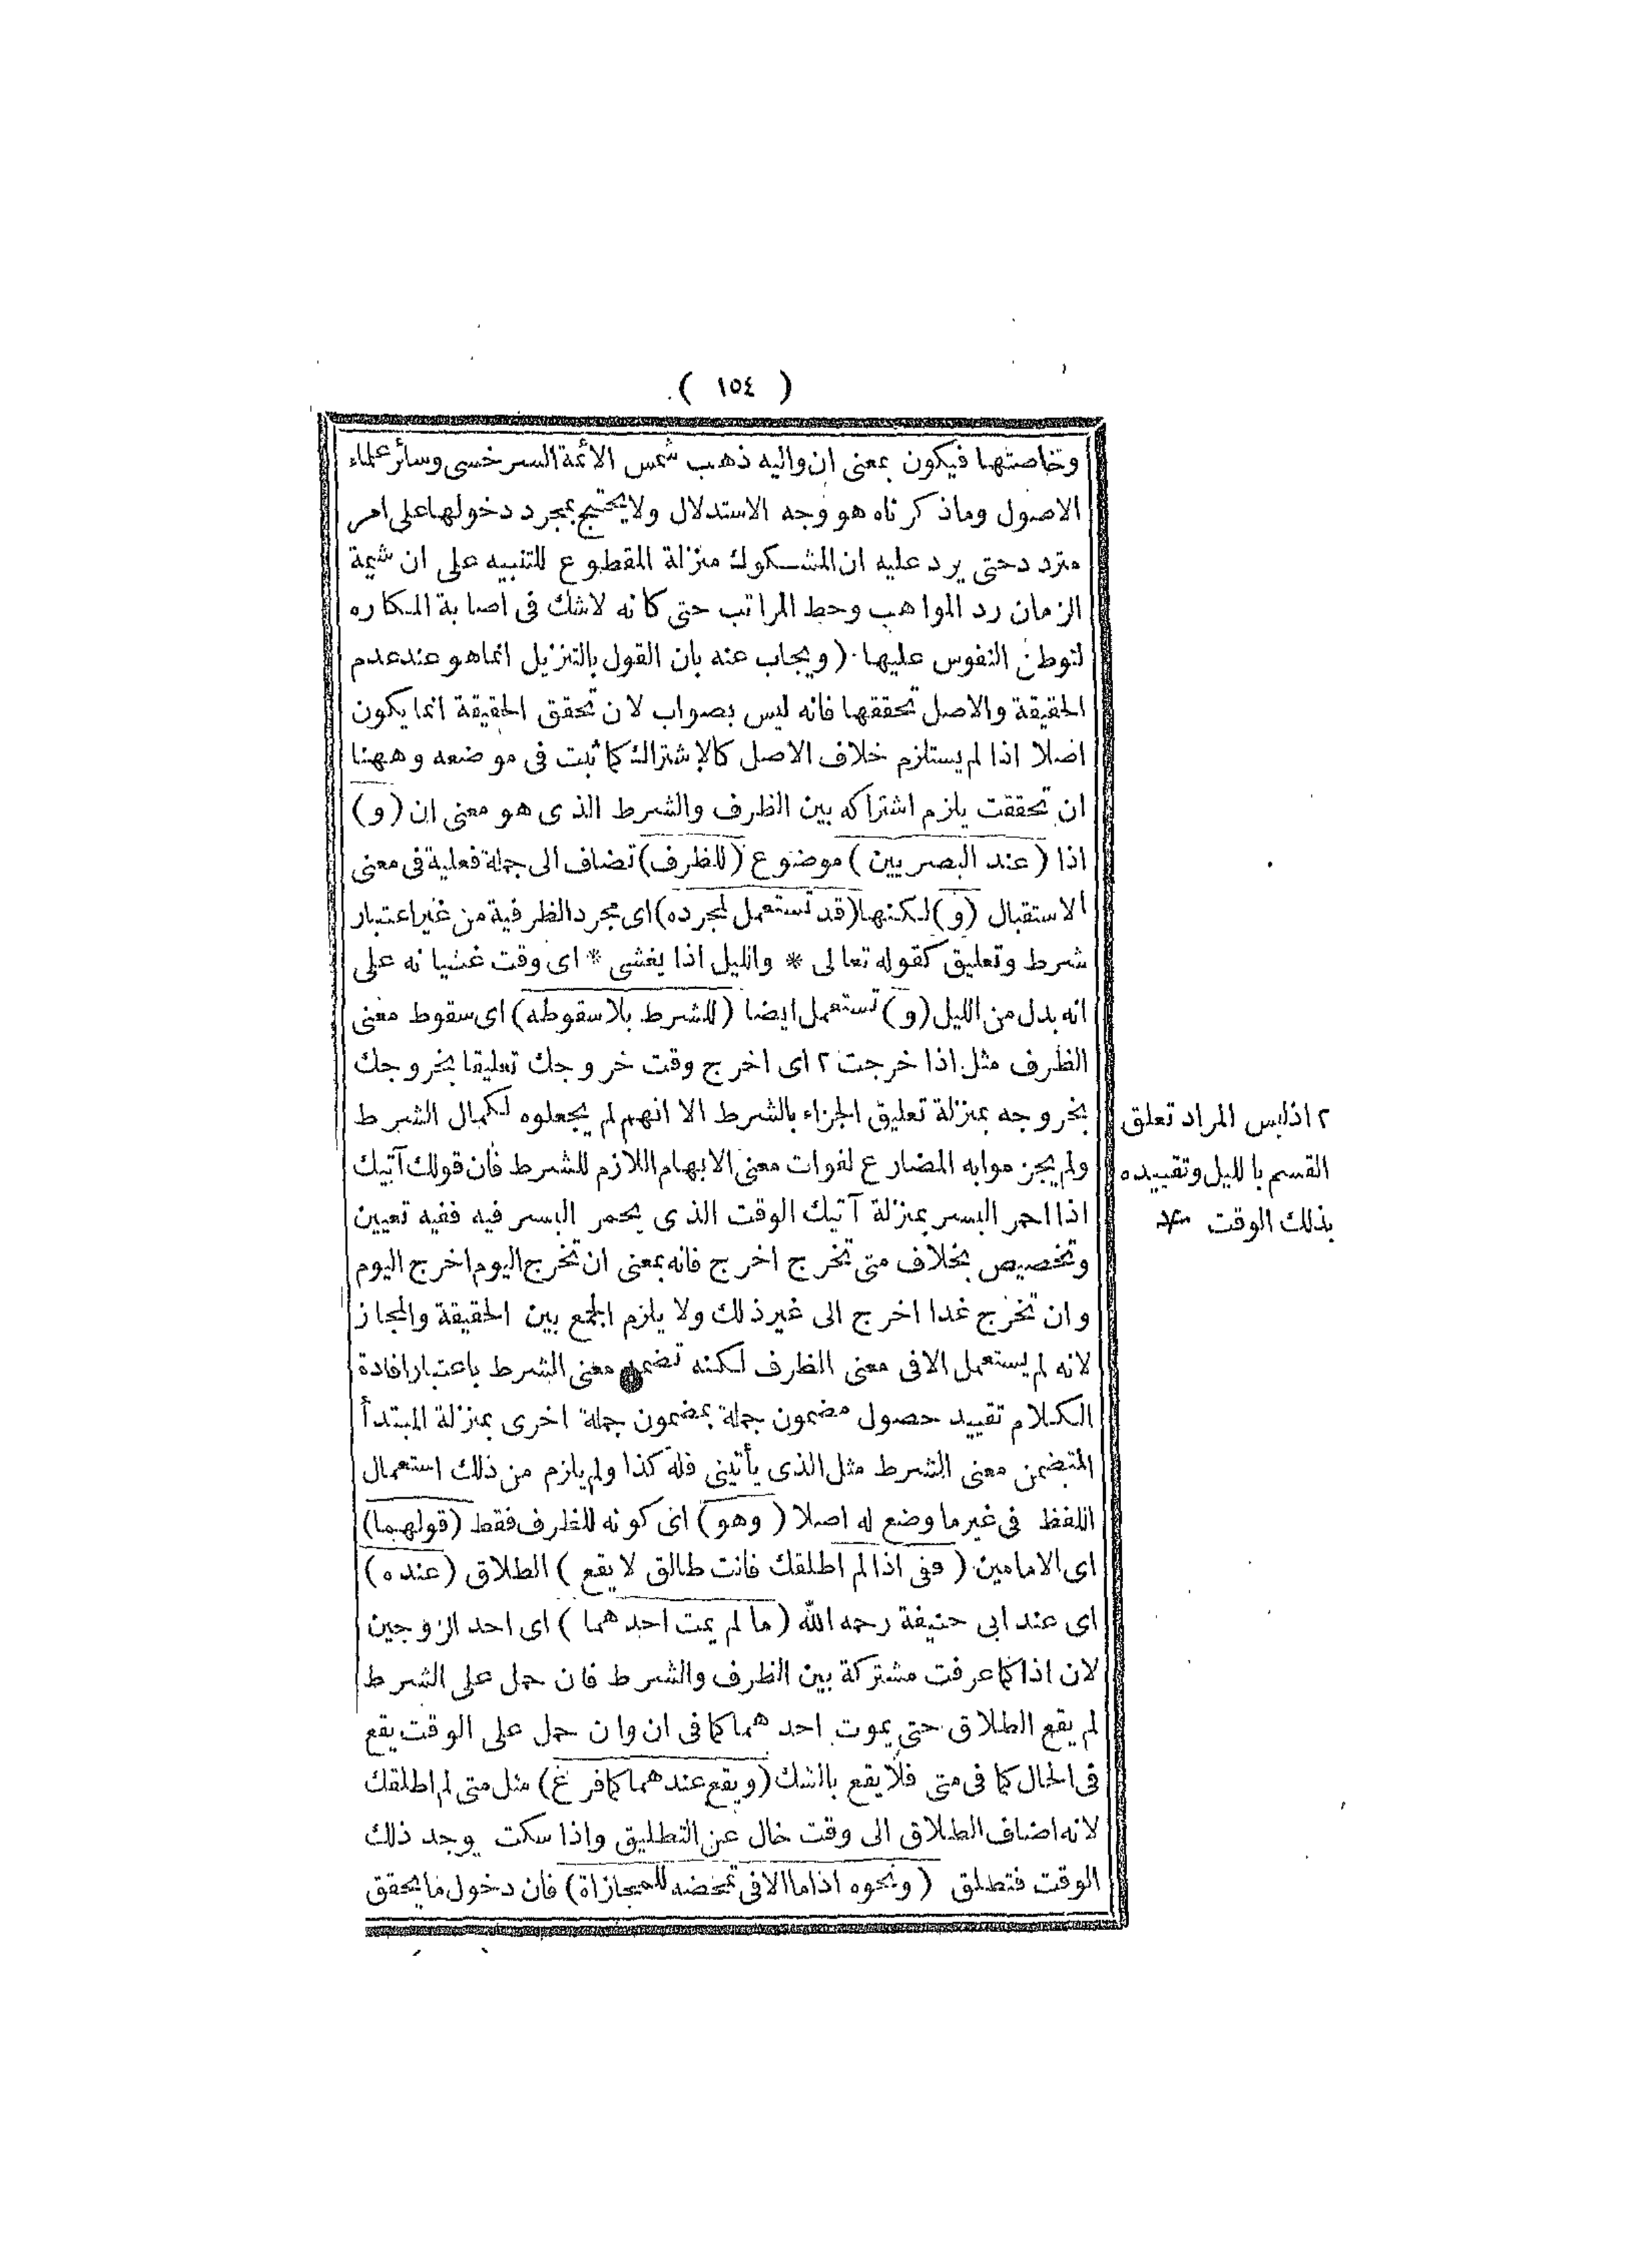 ( ١٥٤ )
وخاصتها فيكون بمعنى ان واليه ذهب شمس الائمة السرخسى وسائر علماء
الاصول وماذكرناه هو وجه الاستدلال ولا يحتج بمجرد دخولها على امر
متردد حتى يرد عليه ان المشكوك منزلة المقطوع للتنبيه على ان شيمة
الزمان رد المواهب وحط المراتب حتى كانه لاشك فى اصابة المكاره
لتوطن النفوس عليها ( ويجاب عنه بان القول بالتنزيل انما هو عند عدم
الحقيقة والاصل تحققها فانه ليس بصواب لان تحقق الحقيقة انما يكون
اصلا اذا لم يستلزم خلاف الاصل كالاشتراك كما ثبت فى موضعه وههنا
ان تحققت يلزم اشتراكه بين الظرف والشرط الذى هو معنى ان (و)
اذا ( عند البصريين ) موضوع (للظرف) تضاف الى جملة فعلية فى معنى
الاستقبال (و) لكنها (قد تستعمل لمجرده) اى مجرد الظرفية من غير اعتبار
شرط وتعليق كقوله تعالى * والليل اذا يغشى * اى وقت غشيانه على
انه بدل من الليل (و) تستعمل ايضا (للشرط بلا سقوطه) اى سقوط معنى
الظرف مثل اذا خرجت ٢ اى اخرج وقت خروجك تعليقا بخروجك
بخروجه بمنزلة تعليق الجزاء بالشرط الا انهم لم يجعلوه لكمال الشرط
ولم يجزموا به المضارع لفوات معنى الابهام اللازم للشرط فان قولك آتيك
اذا احمر البسر بمنزلة آتيك الوقت الذى يحمر البسر فيه ففيه تعيين
وتخصيص بخلاف متى تخرج اخرج فانه بمعنى ان تخرج اليوم اخرج اليوم
وان تخرج غدا اخرج الى غير ذلك ولا يلزم الجمع بين الحقيقة والمجاز
لانه لم يستعمل الا فى معنى الظرف لكنه تضمن معنى الشرط باعتبار افادة
الكلام تقييد حصول مضمون جملة بمضمون جملة اخرى بمنزلة المبتدأ
المتضمن معنى الشرط مثل الذى يأتينى فله كذا ولم يلزم من ذلك استعمال
اللفظ فى غير ما وضع له اصلا ( وهو ) اى كونه للظرف فقط (قولهما)
اى الامامين ( ففى اذا لم اطلقك فانت طالق لا يقع ) الطلاق (عنده)
اى عند ابى حنيفة رحمه الله ( ما لم يمت احدهما ) اى احد الزوجين
لان اذا كما عرفت مشتركة بين الظرف والشرط فان حمل على الشرط
لم يقع الطلاق حتى يموت احدهما كما فى ان وان حمل على الوقت يقع
فى الحال كما فى متى فلا يقع بالشك (ويقع عندهما كما فرغ) مثل متى لم اطلقك
لانه اضاف الطلاق الى وقت خال عن التطليق واذا سكت يوجد ذلك
الوقت فتطلق ( ونحوه اذاما الا فى تمحضه للمجازاة) فان دخول ما يحقق
٢ اذ ليس المراد تعلق
القسم بالليل وتقييده
بذلك الوقت